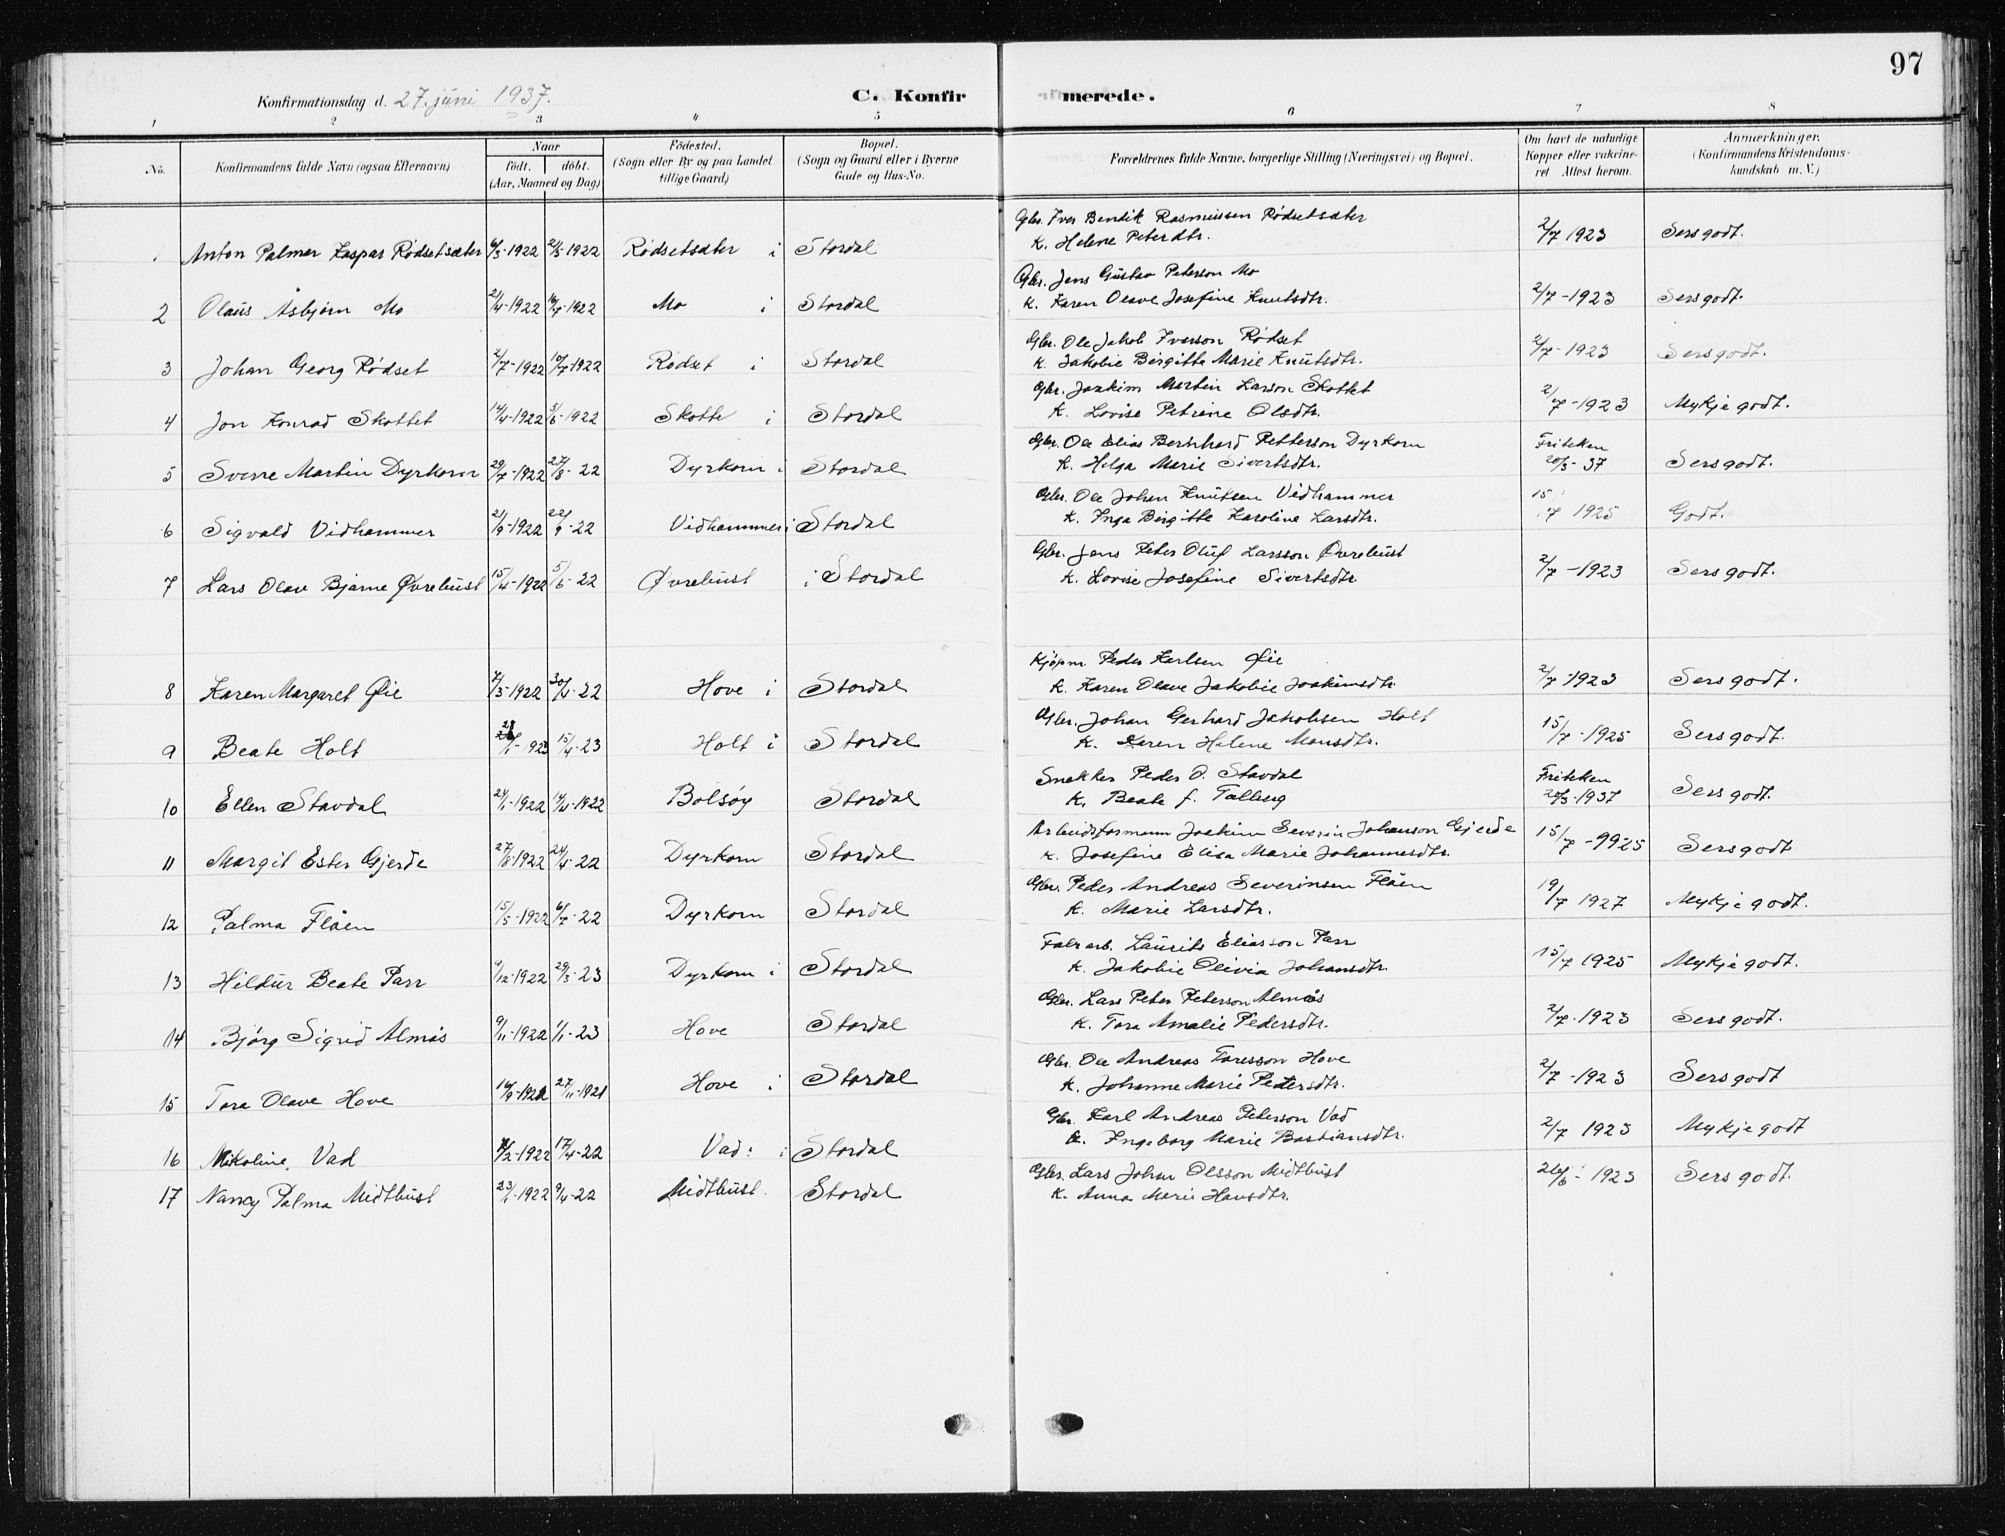 97
Konfirmationsdag d. 27. juni 1937.
C. Konfirmerede.
1 2 3 4 5 6 7 8
No.
Konfirmandens fulde Navn (ogsaa Efternavn)
Naar
født. døbt.
(Aar, Maaned og Dag)
Fødested.
(Sogn eller By og paa Landet
tillige Gaard)
Bopæl.
(Sogn og Gaard eller i Byerne
Gade og Hus-No.
Forældrenes fulde Navne, borgerlige Stilling (Næringsvei) og Bopæl.
Om havt de naturlige
Kopper eller vakcine-
ret. Attest herom.
Anmærkninger.
(Konfirmandens Kristendoms-
kundskab m. V.)
Gbr. Iver Bendik Rasmussen Rødsetsæter
1 Anton Palmer Kaspar Rødsetsæter 6/3-1922 21/5-1922 Rødsetsæter i Stordal K. Helene Peterdtr. 2/7 1923 Sers godt.
Gbr. Jens Gustav Peterson Mo
2 Olaus Åsbjørn Mo 21/4-1922 16/7-1922 Mo i Stordal K. Karen Olave Josefine Knutsdtr. 2/7-1923 Sers godt.
Gbr. Ole Jakob Iverson Rødset
3 Johan Georg Rødset 2/7-1922 10/7 1922 Rødset i Stordal K. Jakobie Birgitte Marie Knutsdtr. 2/7-1923 Sers godt.
Gbr. Joakim Martin Larson Skottet
4 Jon Konrad Skottet 14/4-1922 5/6-1922 Skotte i Stordal K. Lovise Petrine Olsdtr. 2/7-1923 Mykje godt.
Gbr. Ole Elias Bernhard Petterson Dyrkorn Friteken
5 Sverre Martin Dyrkorn 29/7-1922 27/8-22 Dyrkorn i Stordal K. Helga Marie Sivertsdtr. 20/3-37 Sers godt.
Gbr. Ole Johan Knutsen Vidhammer
6 Sigvald Vidhammer 2/9-1922 22/9-22 Vidhammer i Stordal K. Inga Birgitte Karoline Larsdtr. 15/7 1925 Godt.
Gbr. Jens Peter Oluf Larsson Øvrebust
7 Lars Olave Bjarne Øvrebust 15/4-1922 5/6-22 Øvrebust i Stordal K. Lovise Josefine Sivertsdtr 2/7-1923 Sers godt.
Kjøpm Peder Karlsen Øie
8 Karen Margaret Øie 7/3-1922 30/4-22 Hove i Stordal K. Karen Olave Jakobie Joakimsdtr. 2/7 1923 Sers godt.
Gbr. Johan Gerhard Jakobsen Holt
9 Beate Holt 28/1-1923 15/4-23 Holt i Stordal K. Karen Helene Monsdtr. 15/7-1925 Sers godt.
Snekker Peder O. Stavdal Friteken
10 Ellen Stavdal 24/1-1922 14/4-1922 Bolsöy Stordal K. Beate f. Talberg 20/3-1937 Sers godt.
Arbeidsformann Joakim Severin Johanson Gjerde
11 Margit Ester Gjerde 1922 24/4-22 Dyrkorn Stordal K. Josefine Elisa Marie Johannesdtr. 15/7-9925 Sers godt
Gbr. Peder Andreas Severinsen Flåen
12 Palma Flåen 15/5-1922 6/7-22 Dyrkorn Stordal K. Marie Larsdtr. 19/7 1927 Mykje godt.
Fabr arb. Laurits Eliasson Parr
13 Hildur Beate Parr 9/12-1922 29/3-23 Dyrkorn i Stordal K. Jakobie Olivia Johansdtr. 15/7 1925 Mykje godt.
Gbr. Lars Peter Peterson Almås
14 Bjørg Sigrid Almås 9/11-1922 1/1-23 Hove Stordal K. Tora Amalie Pedersdtr. 2/7-1923 Sers godt.
Gbr. Ole Andreas Toresson Hove
15 Tora Olave Hove 16/9-1921 27/11-1921 Hove i Stordal K. Johanne Marie Petersdtr. 2/7-1923 Sers godt
Gbr. Karl Andreas Peterson Vad
16 Nikoline Vad 2-1922 17/4-22 Vad i Stordal K. Ingeborg Marie Bastiansdtr. 2/7 1923 Mykje godt
Gbr. Lars Johan Olsson Midtbust
17 Nancy Palma Midtbust 23/1-1922 9/4-22 Midtbust Stordal K. Anna Marie Hansdtr. 26/6-1923 Sers godt.